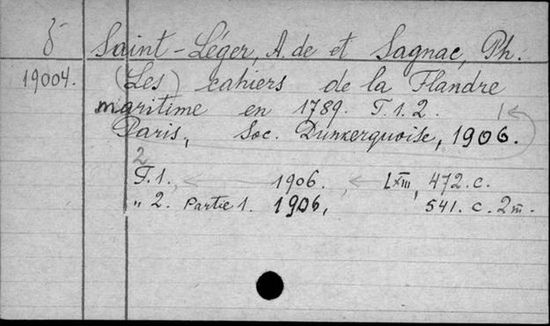 δ Saint-Léger, A. de et Sagnac, Ph.
19004. (Les) cahiers de la Flandre
maritime en 1789. T. 1. 2.
Paris, Soc. Dunkerquoise, 1906.
2
T. 1. 1906. LXIII, 472. c.
„ 2. Partie 1. 1906, 541. c. 2 m.